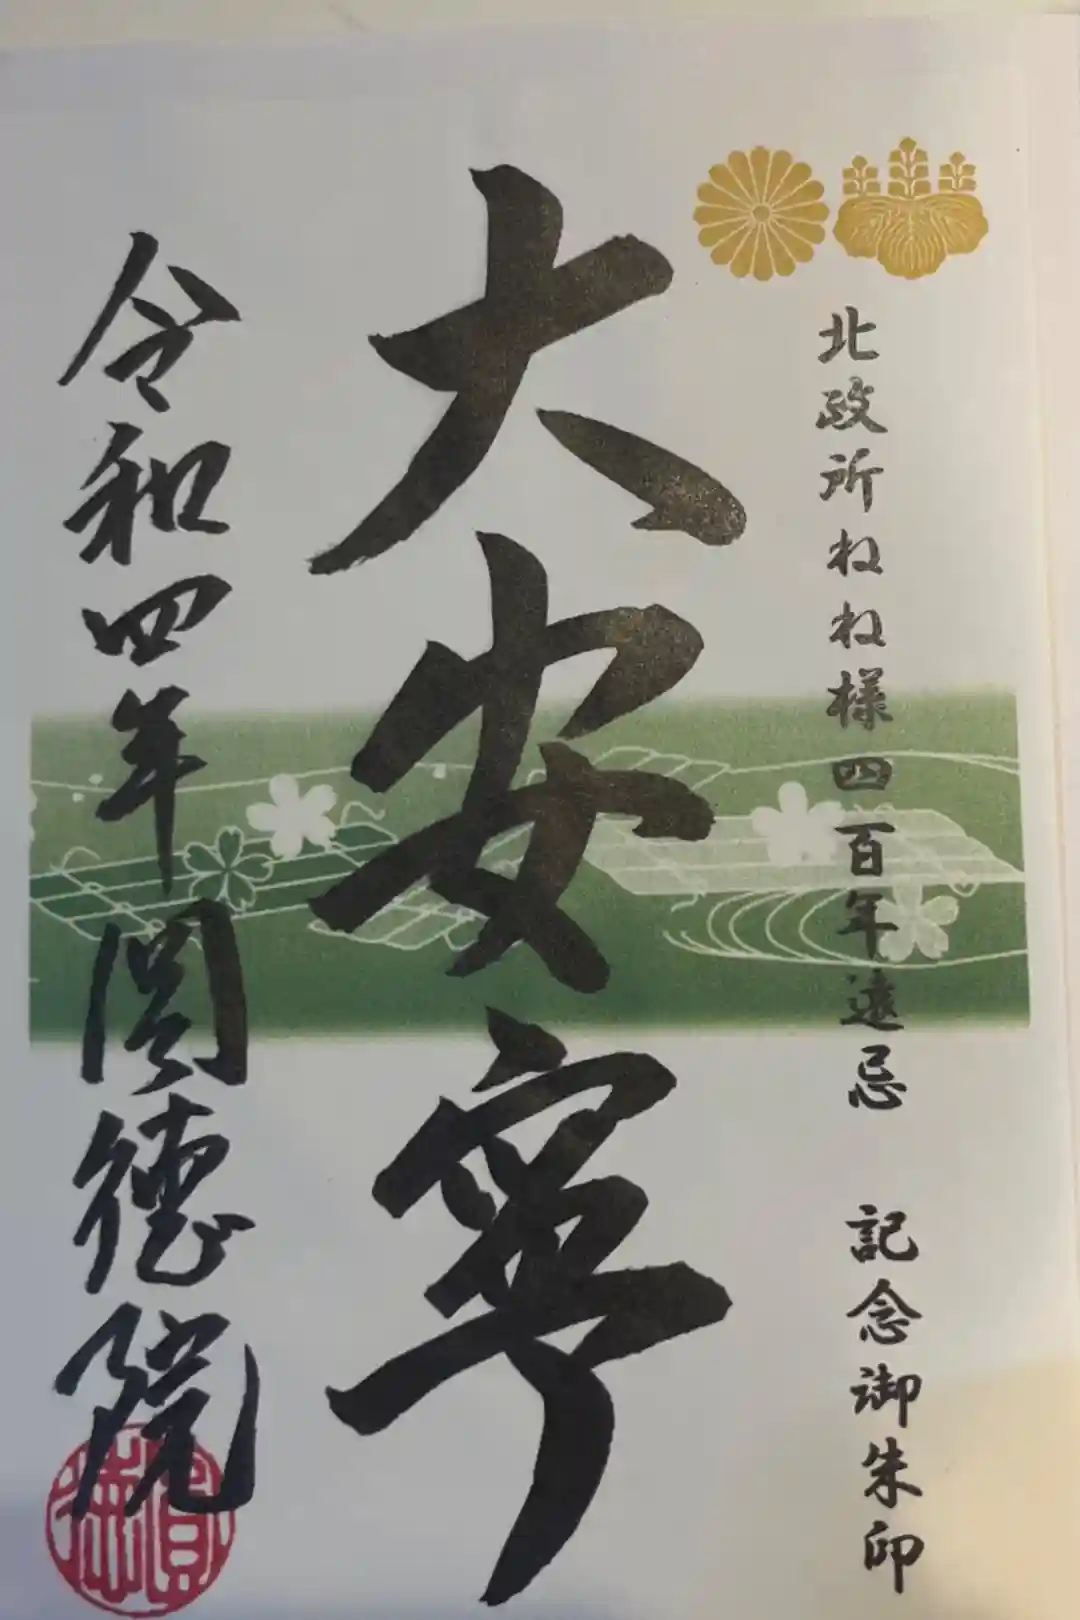 北政所ねね様四百年遠忌 記念御朱印
大安寧
令和四年圓徳院